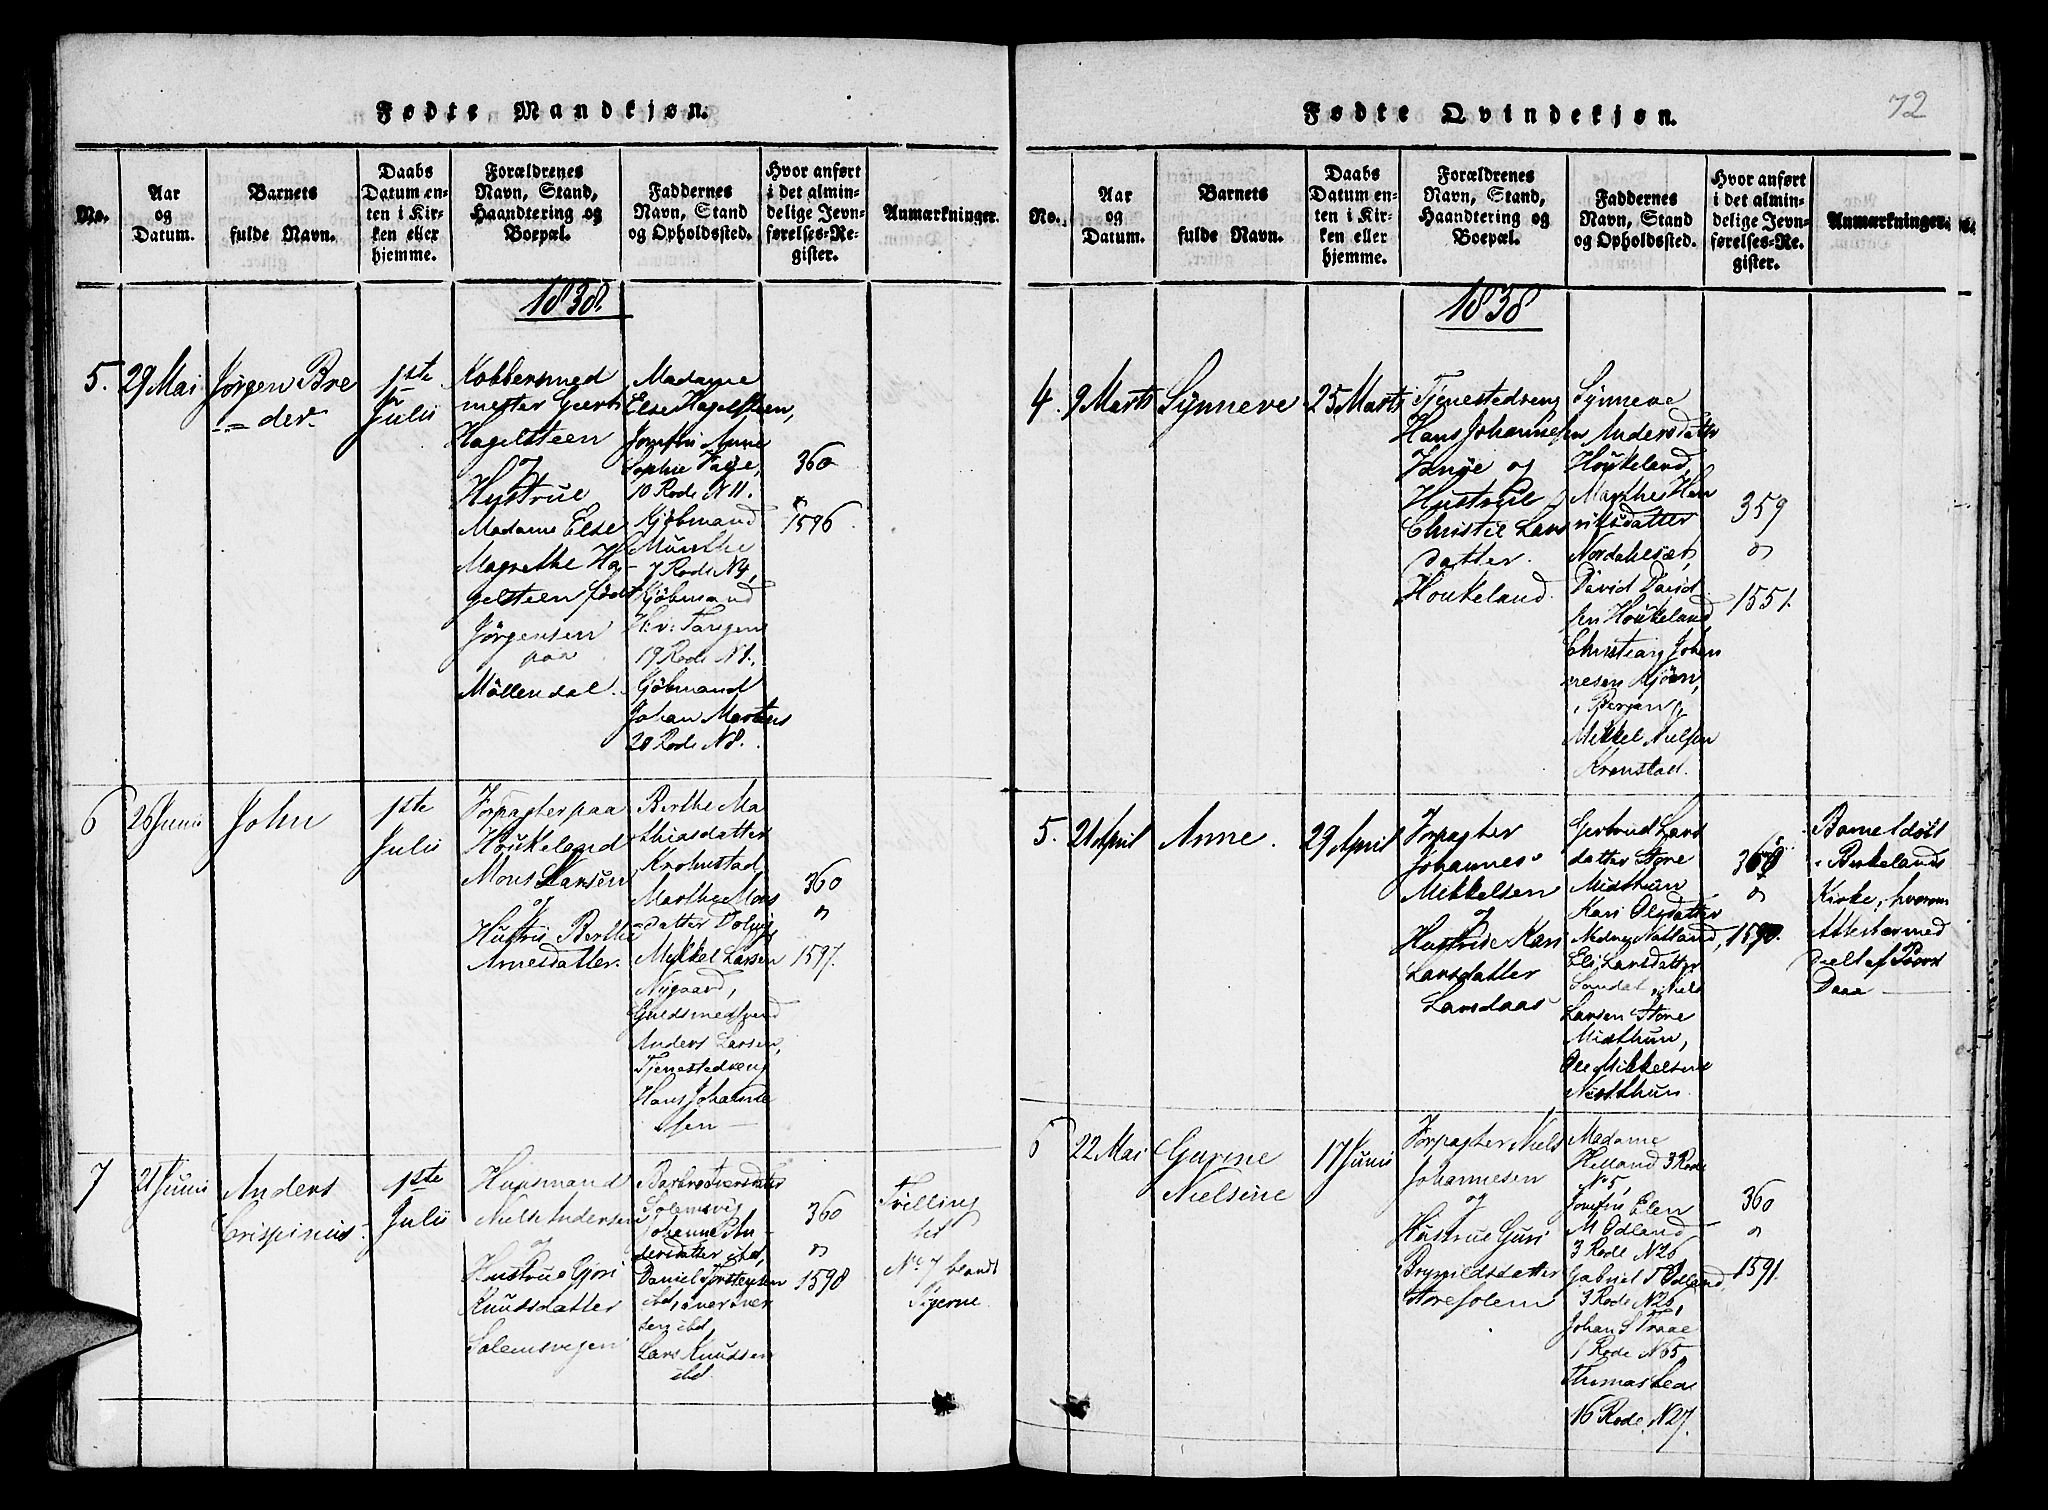 Fødte Mandkjøn.
No.
Aar
og
Datum.
Barnets
fulde Navn.
Daabs
Datum en-
ten i Kir-
ken eller
hjemme.
Forældrenes
Navn, Stand,
Haandtering og
Boepæl.
Faddernes
Navn, Stand
og Opholdssted.
Hvor anført
i det almin-
delige Jevn-
førelses-Re-
gister.
Anmærkninger.
1838.
5.
29 Mai
Jørgen Bre
der
1ste
Julii
Kobbersmed
mester Geert
Hagelsteen
og
Hustrue
Madame Else
Magrethe Ha-
gelsteen født
Jörgensen
paa
Möllendal.
Madame
Else Hagelsteen,
Jomfru Anne
Sophie Faye,
10 Rode N 11.
Kjøbmand
Munthe
7 Rode N 4,
Kjøbmand
H: v: Tangen
19 Rode N 8.,
Kjøbmand
Johan Martens
20 Rode N 8.
360
og
1596
6
26 Junii
John
1ste
Julii
Forpagter paa
Houkeland
Mons Larsen
og
Hustru Berthe
Arnesdatter.
Berthe Ma
thiasdatter
Krohnstad,
Marthe Mons
datter
Mikkel Larsen
Nygaard,
Guldsmedsvend
Anders Larsen,
Tjenestedreng
Hans Johanne
sen
360
og
1597.
7
21 Junii
Anders
Crispinius
1ste
Julii
Huusmand
Niels Andersen
og
Hustrue Gjöri
Knudsdatter
Solemsvegen
Barbro Iversdatter
Solemsvig
Johanne An
dersdatter ibd,
Daniel Torstensen
ibd,
sen ibd,
Lars Knudsen
ibd
360
og
1598
Tvilling
til
No 7 blandt
Pigerne.
Fødte Qvindekjøn.
72
No.
Aar
og
Datum.
Barnets
fulde Navn.
Daabs
Datum en-
ten i Kir-
ken eller
hjemme.
Forældrenes
Navn, Stand,
Haandtering og
Boepæl.
Faddernes
Navn, Stand
og Opholdssted.
Hvor anført
i det almin-
delige Jevn-
førelses-Re-
gister.
Anmærkninger.
1838
4.
9 Marts
Synneve
25 Marts
Tjenestedreng
Hans Johannesen
og
Hustrue
Christie Lars
datter.
Houkeland.
Synneve
Andersdatter
Houkeland,
Marthe Hen
riksdatter
David David
sen Houkeland
Christian Johan
nesen
i Bergen,
Mikkel Nielsen
Kronstad.
359
og
1551.
5.
21 April
Anne.
29 April
Forpagter
Johannes
Mikkelsen
og
Hustrue Kari
Larsdatter
Landaas
Gertrud Lars
datter Store
Midthun
Kari Olsdatter
Nedre Natland,
Eli Larsdatter
Sandal, Niels
Larsen Store
Midthun,
Ole Mikkelsen
Midtthun
360
og
1590.
Barnet døbt
i Birkelands
Kirke, hvorom
Attest er med
deelt af Provst
Daae
6
22 Mai
Gurine
Nielsine
17 Junii
Forpagter Niels
Johannesen
og
Hustrue Guri
Brynildsdatter
Store Solem
Madame
Helland 3 Rode
No 5,
Jomfru Elen
M Odland
3 Rode N 26
Gabriel T Odland,
3 Rode N 26,
Johan S Traae
1 Rode N 65
Thomas Lea
16 Rode N 27.
360
og
1591.